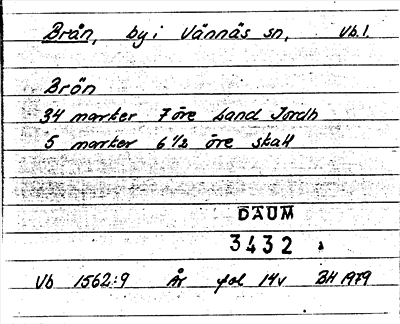 Brån, by i Vännäs sn, Vb.l.
Brön
34 marker 7 öre Land Jordh
5 marker 6 1/2 öre skatt
DAUM
3432
Vb 1562:9 År fol 14v BH 1979